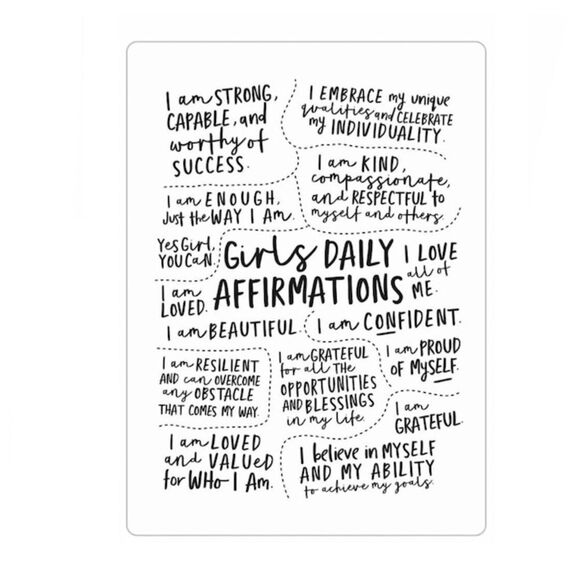 I am STRONG,
CAPABLE, and
worthy of
SUCCESS.
I EMBRACE my unique
qualities and CELEBRATE
my INDIVIDUALITY.
I am KIND,
compassionate,
and RESPECTFUL to
myself and others.
I am ENOUGH,
Just the WAY I Am.
Yes Girl,
YOU CaN.
Girls DAILY
AFFIRMATIONS
I LOVE
all of
ME.
I am
LOVED.
I am BEAUTIFUL.
I am CONFIDENT.
I am RESILIENT
AND can OVERCOME
any OBSTACLE
THAT COMES MY WAY.
I am GRATEFUL
for all THE
OPPORTUNITIES
AND BLESSINGS
in my life.
I am PROUD
OF MySELF.
I am
GRATEFUL.
I am LOVED
and VALUeD
for WHo I Am.
I believe in MYSELF
AND MY ABILITY
to achieve my goals.